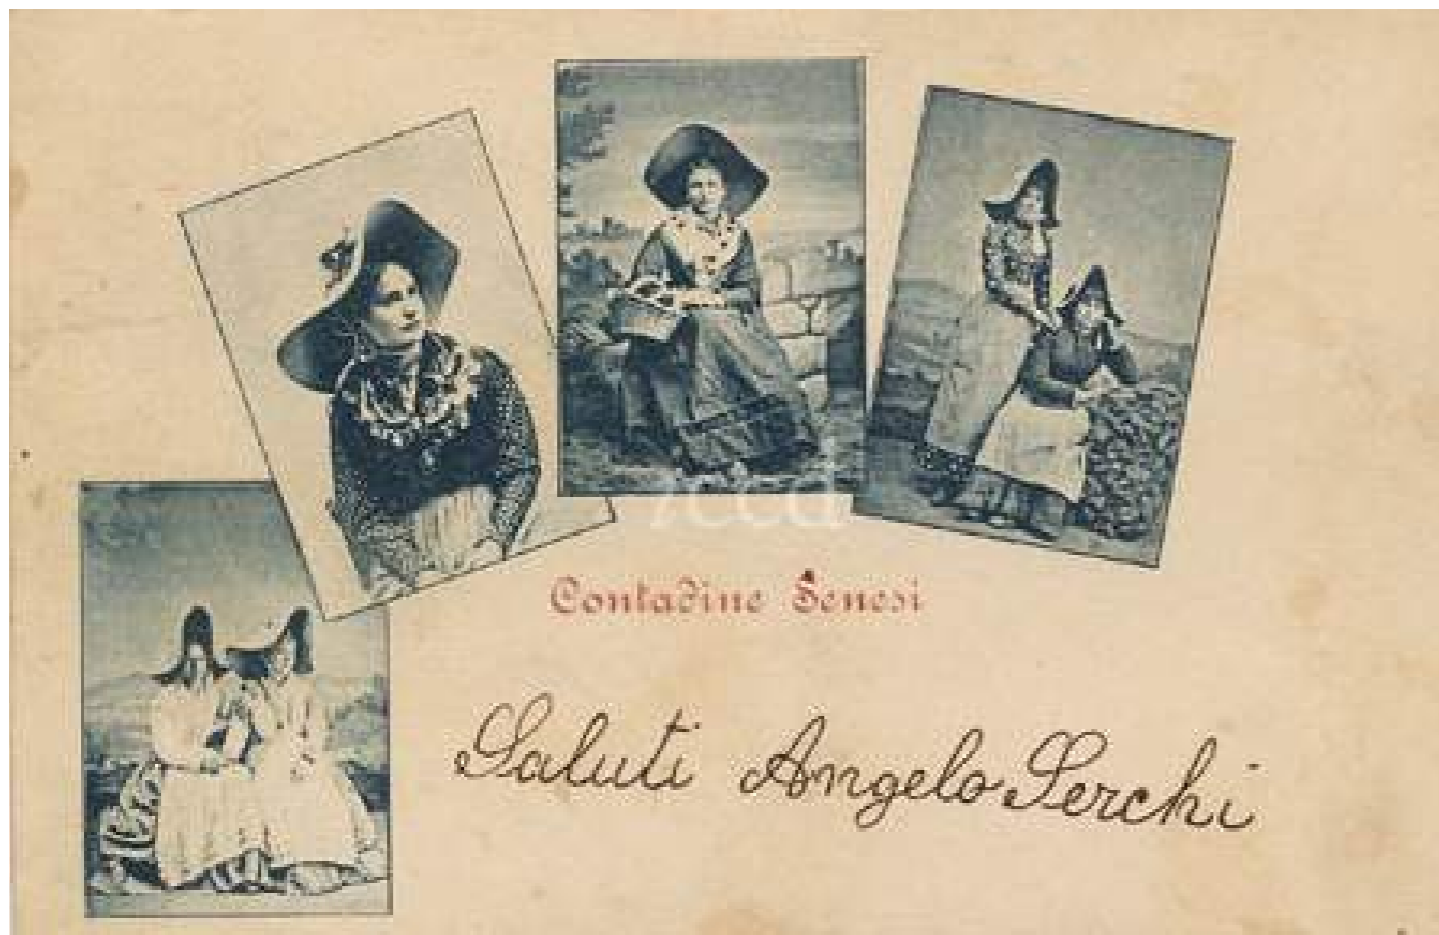 iccd
Contadine Senesi
Saluti Angelo Serchi